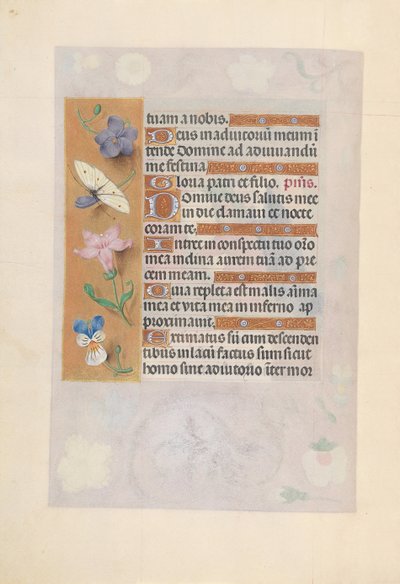 tuam a nobis.
Deus in adiutoriū meum ī
tende Domine ad adiuuandū
me festina.
Gloria patri et filio. pm̄s.
Domine deus salutis mee
in die clamaui et nocte
coram te.
Intret in conspectu tuo oro
mea inclina aurem tuā ad pre
cem meam.
Quia repleta est malis aīma
mea et vita mea in inferno ap
propinauit.
Extimatus sū cum descenden
tibus in lacū factus sum sicut
homo sine adiutorio īter mor